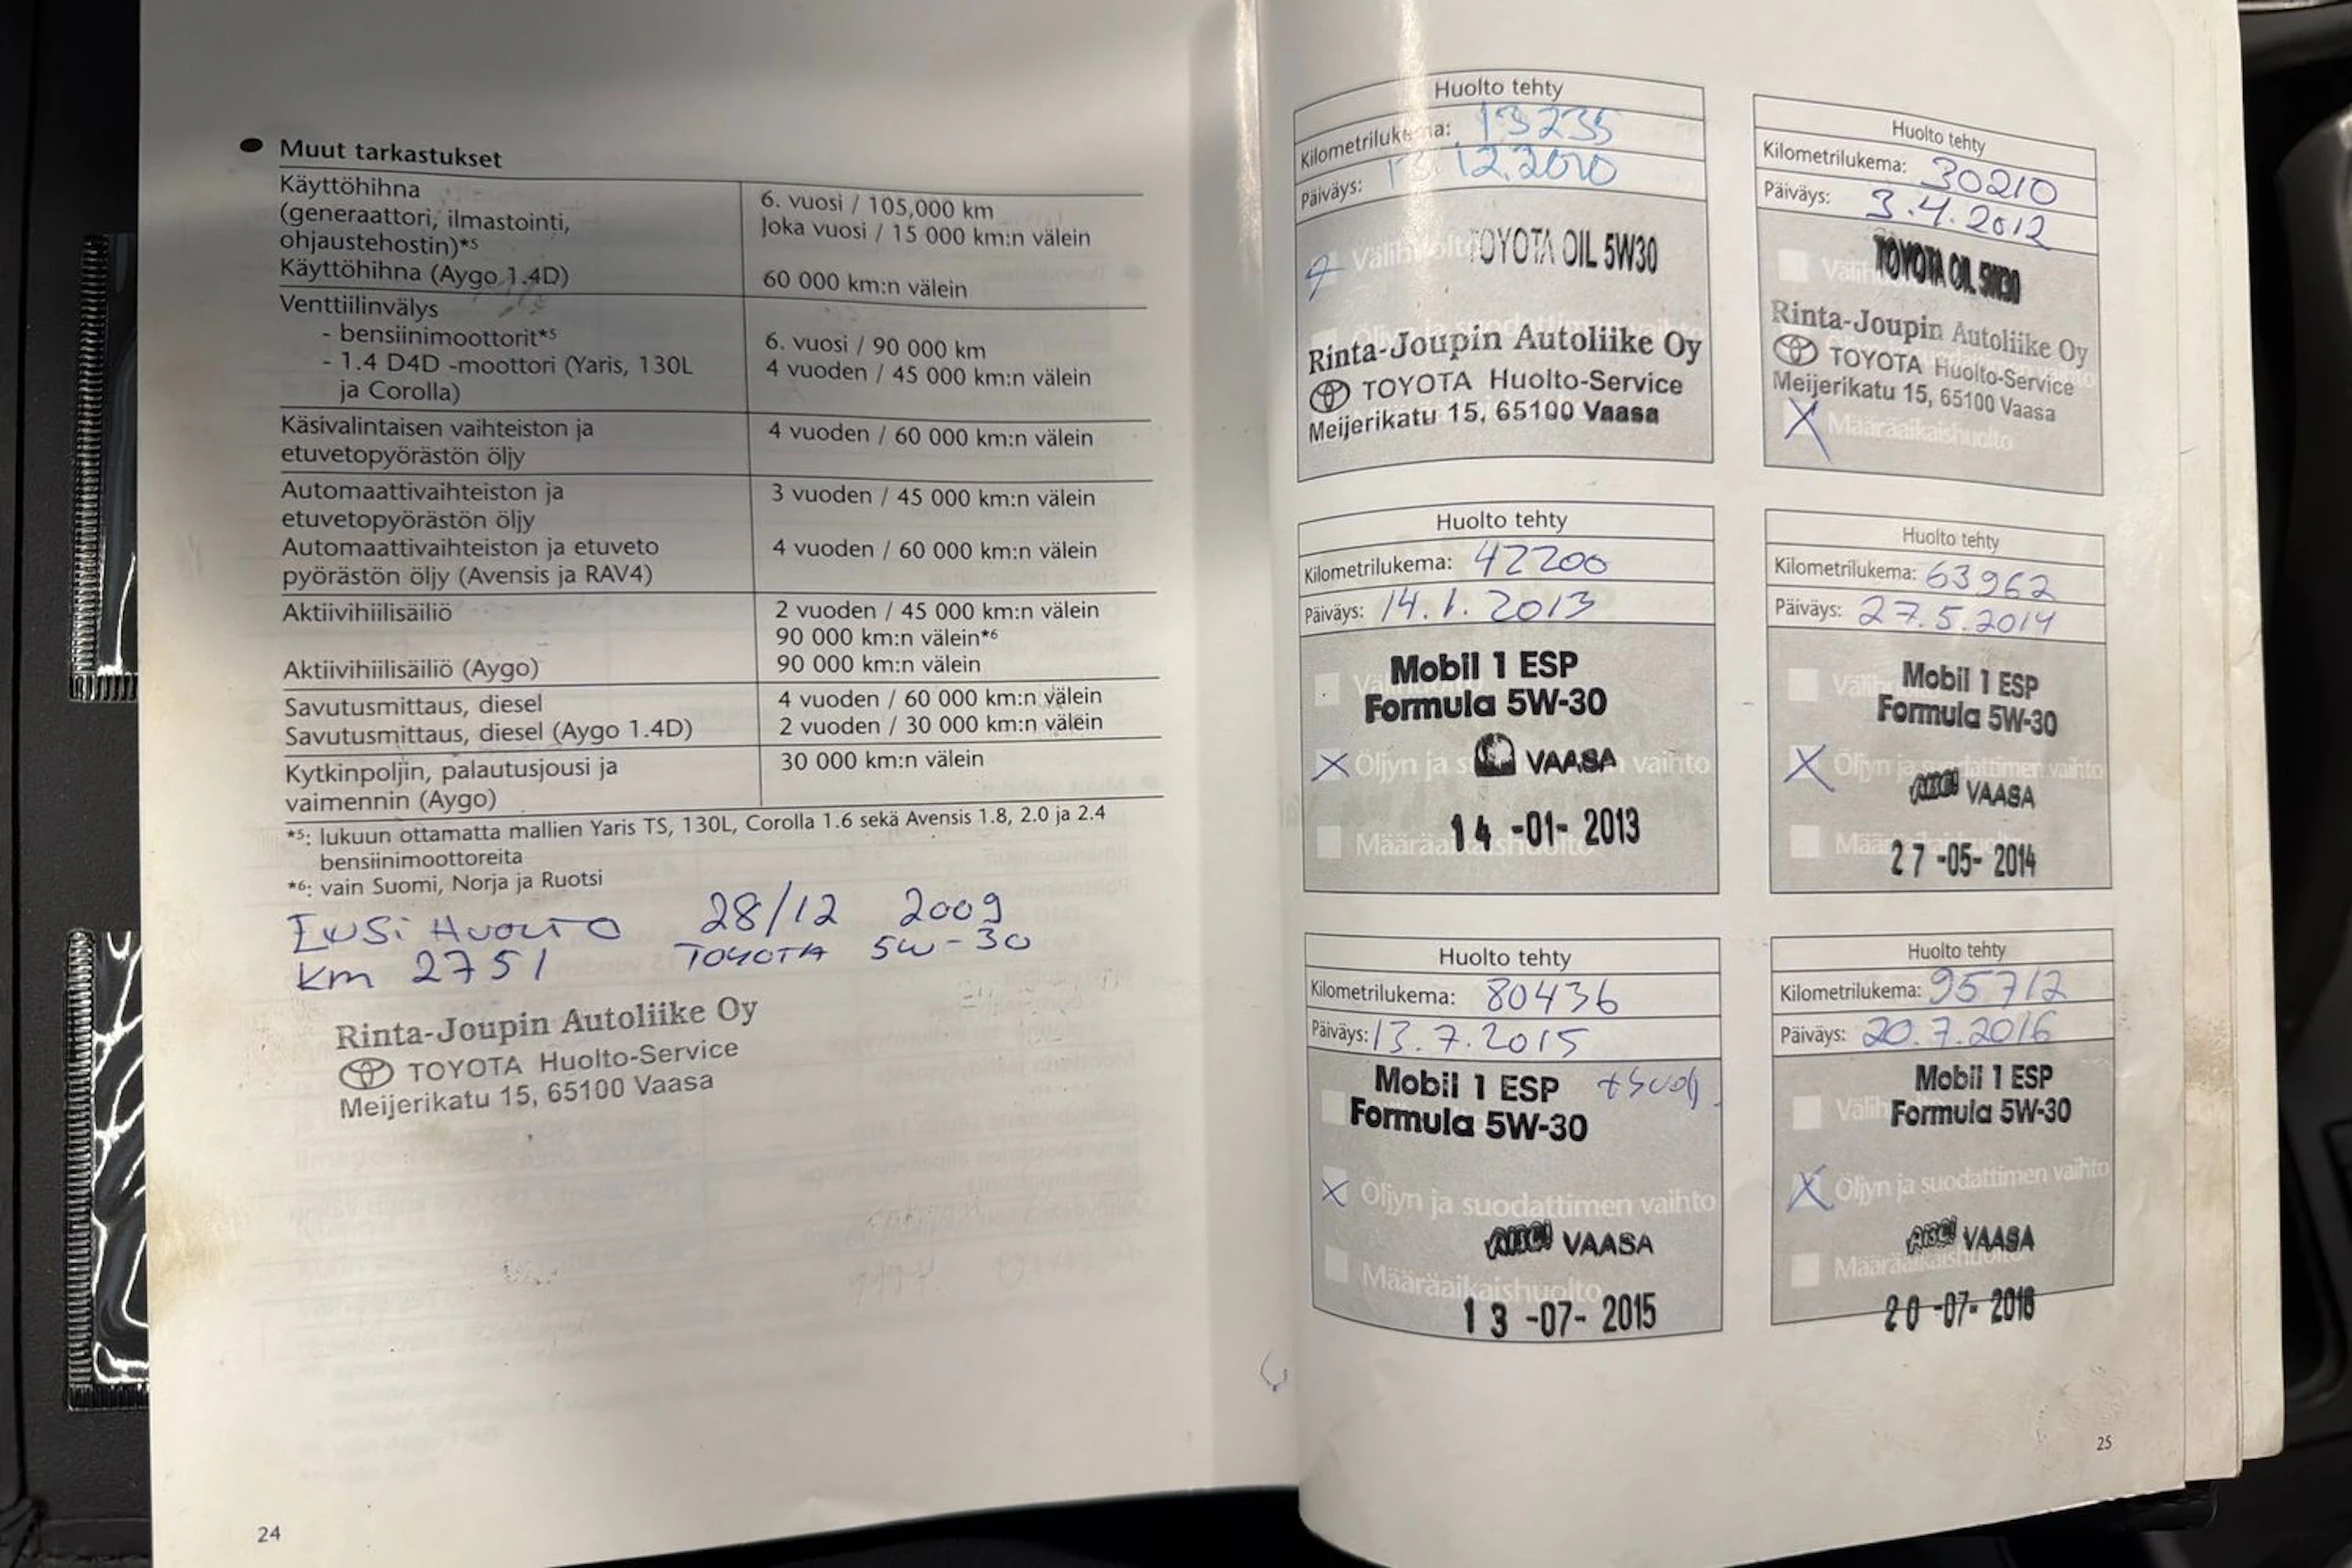 Muut tarkastukset
Käyttöhihna
(generaattori, ilmastointi,
ohjaustehostin)*5
6. vuosi / 105,000 km
Joka vuosi / 15 000 km:n välein
Käyttöhihna (Aygo 1.4D)
60 000 km:n välein
Venttiilinvälys
- bensiinimoottorit*5
6. vuosi / 90 000 km
- 1.4 D4D -moottori (Yaris, 130L
ja Corolla)
4 vuoden / 45 000 km:n välein
Käsivalintaisen vaihteiston ja
etuvetopyörästön öljy
4 vuoden / 60 000 km:n välein
Automaattivaihteiston ja
etuvetopyörästön öljy
3 vuoden / 45 000 km:n välein
Automaattivaihteiston ja etuveto
pyörästön öljy (Avensis ja RAV4)
4 vuoden / 60 000 km:n välein
Aktiivihiilisäiliö
2 vuoden / 45 000 km:n välein
90 000 km:n välein*6
Aktiivihiilisäiliö (Aygo)
90 000 km:n välein
Savutusmittaus, diesel
4 vuoden / 60 000 km:n välein
Savutusmittaus, diesel (Aygo 1.4D)
2 vuoden / 30 000 km:n välein
Kytkinpoljin, palautusjousi ja
vaimennin (Aygo)
30 000 km:n välein
*5: lukuun ottamatta mallien Yaris TS, 130L, Corolla 1.6 sekä Avensis 1.8, 2.0 ja 2.4
bensiinimoottoreita
*6: vain Suomi, Norja ja Ruotsi
Ensi Huolto 28/12 2009
km 2751 TOYOTA 5W-30
Rinta-Joupin Autoliike Oy
TOYOTA Huolto-Service
Meijerikatu 15, 65100 Vaasa
24
Huolto tehty
Kilometrilukema: 13235
Päiväys: 13.12.2010
Välihuolto
TOYOTA OIL 5W30
Rinta-Joupin Autoliike Oy
TOYOTA Huolto-Service
Meijerikatu 15, 65100 Vaasa
Huolto tehty
Kilometrilukema: 30210
Päiväys: 3.4.2012
TOYOTA OIL 5W30
Rinta-Joupin Autoliike Oy
TOYOTA Huolto-Service
Meijerikatu 15, 65100 Vaasa
X Määräaikaishuolto
Huolto tehty
Kilometrilukema: 42200
Päiväys: 14.1.2013
Mobil 1 ESP
Formula 5W-30
X Öljyn ja suodattimen vaihto
VAASA
Määräaikaishuolto
14 -01- 2013
Huolto tehty
Kilometrilukema: 63962
Päiväys: 27.5.2014
Mobil 1 ESP
Formula 5W-30
X Öljyn ja suodattimen vaihto
VAASA
27 -05- 2014
Huolto tehty
Kilometrilukema: 80436
Päiväys: 13.7.2015
Mobil 1 ESP + suod.
Formula 5W-30
X Öljyn ja suodattimen vaihto
VAASA
Määräaikaishuolto
13 -07- 2015
Huolto tehty
Kilometrilukema: 95712
Päiväys: 20.7.2016
Mobil 1 ESP
Formula 5W-30
X Öljyn ja suodattimen vaihto
VAASA
Määräaikaishuolto
20 -07- 2016
25